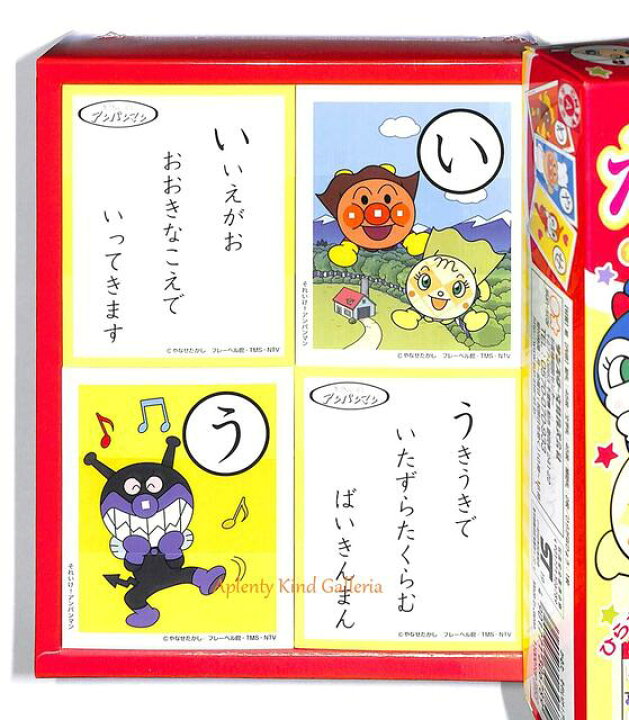 アンパンマン
いいえがお
おおきなこえで
いってきます
©やなせたかし フレーベル館・TMS・NTV
い
それいけ!アンパンマン
©やなせたかし フレーベル館・TMS・NTV
う
それいけ!アンパンマン
©やなせたかし フレーベル館・TMS・NTV
アンパンマン
うきうきで
いたずらたくらむ
ばいきんまん
©やなせたかし フレーベル館・TMS・NTV
Aplenty Kind Galleria
ST
ひら